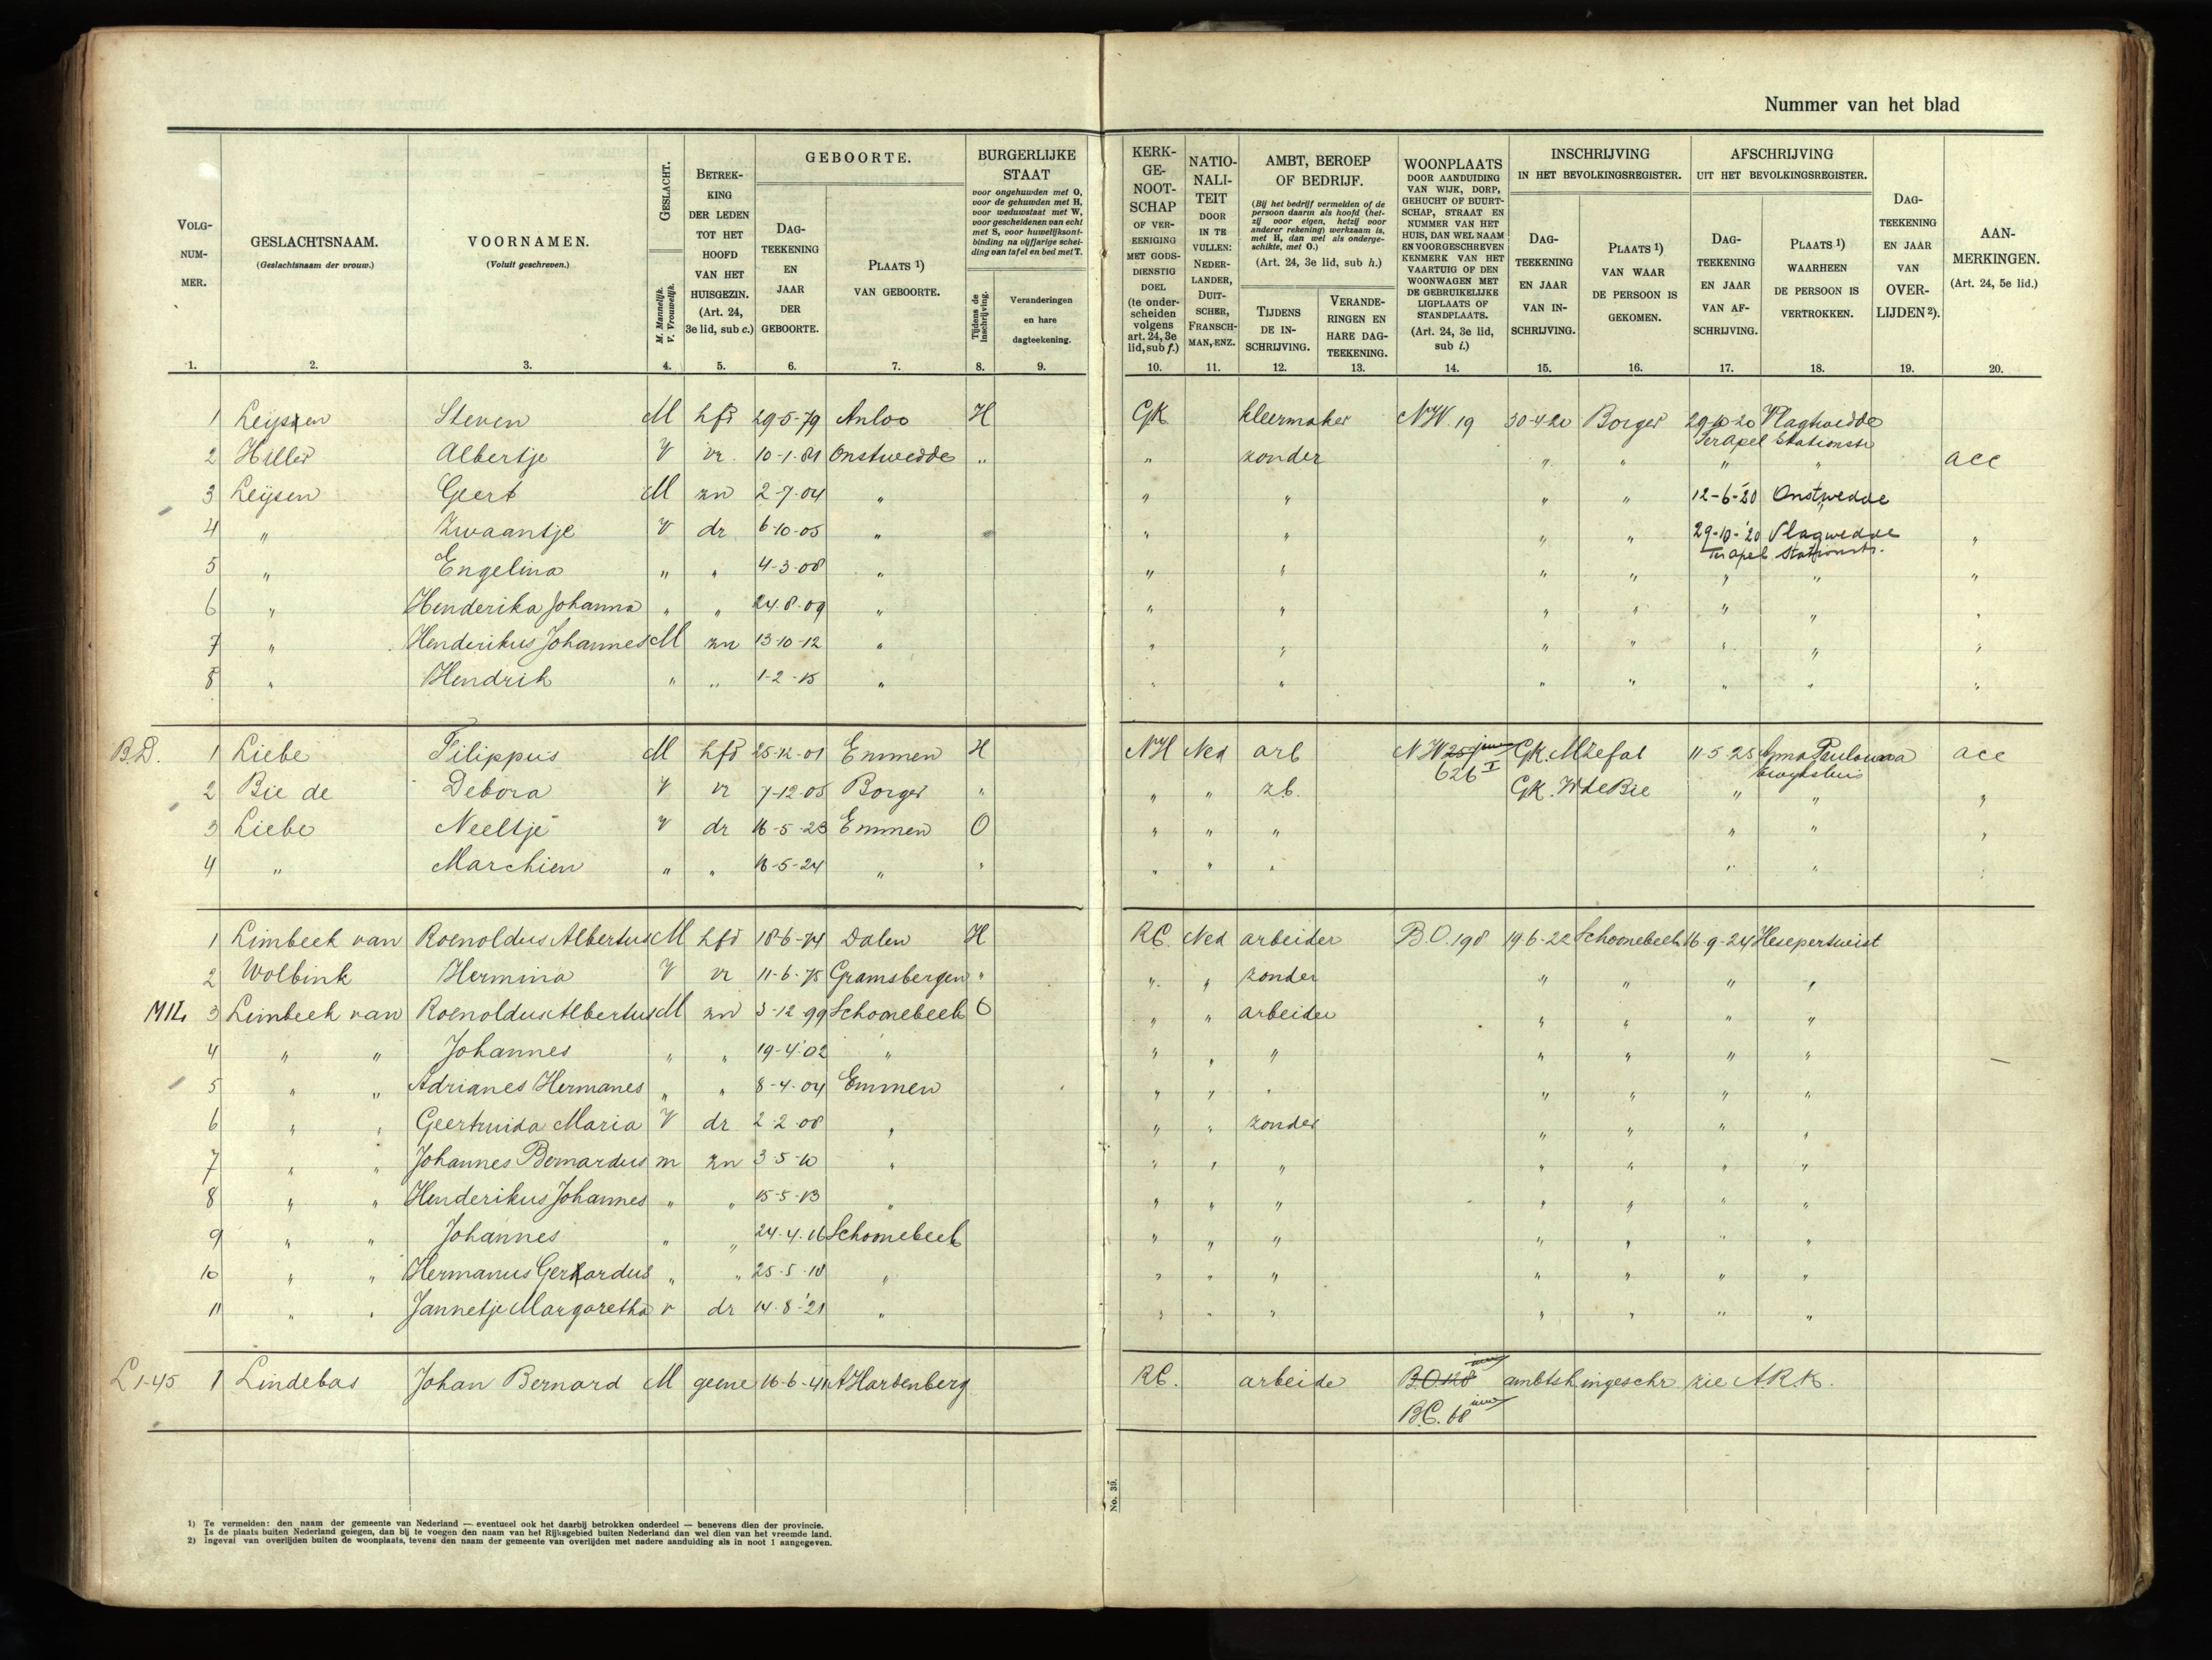 Nummer van het blad
VOLG-NUM-MER.
GESLACHTSNAAM.
(Geslachtsnaam der vrouw.)
VOORNAMEN.
(Voluit geschreven.)
GESLACHT.
M. Mannelijk.
V. Vrouwelijk.
BETREK-KING DER LEDEN TOT HET HOOFD VAN HET HUISGEZIN.
(Art. 24, 3e lid, sub c.)
GEBOORTE.
DAG-TEEKENING EN JAAR DER GEBOORTE.
PLAATS 1) VAN GEBOORTE.
BURGERLIJKE STAAT
voor ongehuwden met O, voor de gehuwden met H, voor weduwstaat met W, voor gescheidenen van echt met S, voor huwelijksont-binding na vijfjarige schei-ding van tafel en bed met T.
Tijdens de inschrijving.
Veranderingen en hare dagteekening.
KERK-GE-NOOT-SCHAP OF VER-EENIGING MET GODS-DIENSTIG DOEL (te onder-scheiden volgens art. 24, 3e lid, sub f.)
NATIO-NALI-TEIT DOOR IN TE VULLEN: NEDER-LANDER, DUIT-SCHER, FRANSCH-MAN, ENZ.
AMBT, BEROEP OF BEDRIJF.
(Bij het bedrijf vermelden of de persoon daarin als hoofd (het-zij voor eigen, hetzij voor anderer rekening) werkzaam is, met H, dan wel als onderge-schikte, met O.)
(Art. 24, 3e lid, sub h.)
TIJDENS DE IN-SCHRIJVING.
VERANDE-RINGEN EN HARE DAG-TEEKENING.
WOONPLAATS DOOR AANDUIDING VAN WIJK, DORP, GEHUCHT OF BUURT-SCHAP, STRAAT EN NUMMER VAN HET HUIS, DAN WEL NAAM EN VOORGESCHREVEN KENMERK VAN HET VAARTUIG OF DEN WOONWAGEN MET DE GEBRUIKELIJKE LIGPLAATS OF STANDPLAATS.
(Art. 24, 3e lid, sub i.)
INSCHRIJVING IN HET BEVOLKINGSREGISTER.
DAG-TEEKENING EN JAAR VAN IN-SCHRIJVING.
PLAATS 1) VAN WAAR DE PERSOON IS GEKOMEN.
AFSCHRIJVING UIT HET BEVOLKINGSREGISTER.
DAG-TEEKENING EN JAAR VAN AF-SCHRIJVING.
PLAATS 1) WAARHEEN DE PERSOON IS VERTROKKEN.
DAG-TEEKENING EN JAAR VAN OVER-LIJDEN 2).
AAN-MERKINGEN.
(Art. 24, 5e lid.)
1. 2. 3. 4. 5. 6. 7. 8. 9. 10. 11. 12. 13. 14. 15. 16. 17. 18. 19. 20.
1 Leijsen Steven M hfd 29-5-79 Anloo H GK kleermaker NW. 19 30-4-20 Borger 29-10-20 Vlagtwedde
Ter Apel Stationstr
2 Hiller Albertje V vr. 10-1-81 Onstwedde " " zonder " " " " acc
3 Leijsen Geert M zn 2-7-04 " " " " " 12-6-'20 Onstwedde
4 " Zwaantje V dr 6-10-05 " " " " " 29-10-'20 Vlagwedde "
Ter Apel Stationstr.
5 " Engelina " " 4-3-08 " " " " " " " "
6 " Henderika Johanna " " 24.8.09 " " " " " " "
7 " Henderikus Johannes M zn 13-10-12 " " " " " " " "
8 " Hendrik " " 1-2-15 " " " " " " " "
B.D. 1 Liebe Filippus M hfd 25-12-01 Emmen H NH Ned arb NW 251 GK. M Zefat 11-5-25 Anna Paulowna acc
626 I Ewyksluis
2 Bie de Debora V vr 7-12-05 Borger " " " zb. GK. W de Bie " " "
3 Liebe Neeltje V dr 16-5-23 Emmen O " " " " " "
4 " Marchien " " 16-5-24 " " " " " " " "
1 Limbeek van Roenoldus Albertus M hfd 18-6-74 Dalen H RC. Ned arbeider B.O. 198 19 6-22 Schoonebeek 16-9-24 Hesepertwist
2 Wolbink Hermina V vr 11-6-75 Gramsbergen " " " zonder " " " "
MIL 3 Limbeek van Roenoldus Albertus M zn 3-12 99 Schoonebeek O " " arbeider " " " "
4 " " Johannes " " 19-4-'02 " " " " " " " " —
5 " " Adrianes Hermanes " " 8-4-04 Emmen " " " " " " "
6 " " Geertruida Maria V dr 2-2-08 " " " zonder " " " "
7 " " Johannes Bernardus m zn 3-5-10 " " " " " " " "
8 " " Henderikus Johannes " " 15-5-13 " " " " " " " "
9 " " Johannes " " 24-4-16 Schoonebeek " " " " " " "
10 " " Hermanus Gerardus " " 25-5-18 " " " " " " " "
11 " " Jannetje Margaretha v dr 14-8-'21 " " " " " " " "
L 1-45 1 Lindebas Johan Bernard M geene 16-6-41 A Hardenberg RC. arbeide B.O. 128 ambtsh ingeschr zie A.R.K.
B.C. 68
No. 39.
1) Te vermelden: den naam der gemeente van Nederland — eventueel ook het daarbij betrokken onderdeel — benevens dien der provincie.
Is de plaats buiten Nederland gelegen, dan bij te voegen den naam van het Rijksgebied buiten Nederland dan wel dien van het vreemde land.
2) Ingeval van overlijden buiten de woonplaats, tevens den naam der gemeente van overlijden met nadere aanduiding als in noot 1 aangegeven.